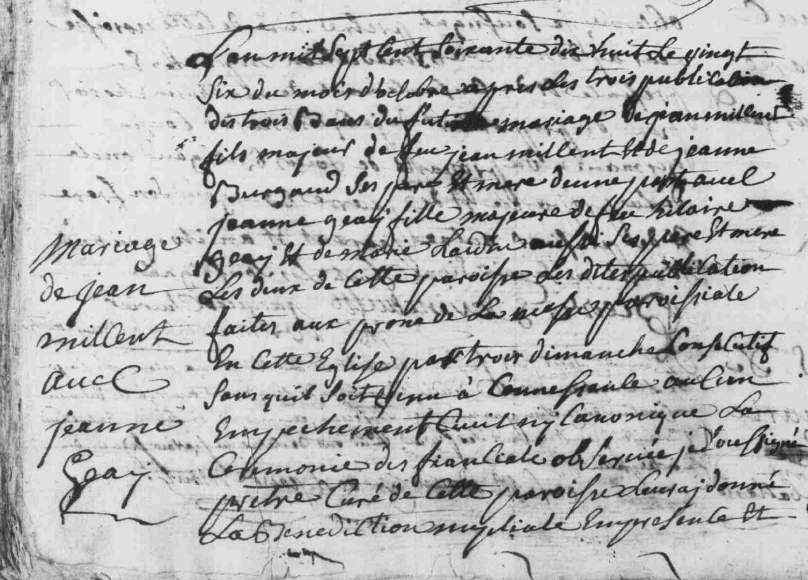 Mariage
de jean
millent
avec
jeanne
Geay
L'an mil sept cent soixante dix huit le vingt
six du mois d'octobre après les trois publication
des trois Bans du futur mariage de jean millent
fils majeur de feu jean millent Et de jeanne
Burgaud ses pere Et mere d'une part avec
jeanne geay fille majeure de feu hilaire
geay Et de marie aussi ses pere Et mere
Les deux de cette paroisse les dites publication
faites aux prone de La messe paroissiale
En cette Eglise par trois dimanche Consecutif
sans quil soit venu à Connessance aucun
Empechement Civil ny Canonique La
Ceremonie des fiancialle observée je soussigné
pretre Curé de Cette paroisse leurs ay donné
La Benediction nuptiale En presence Et